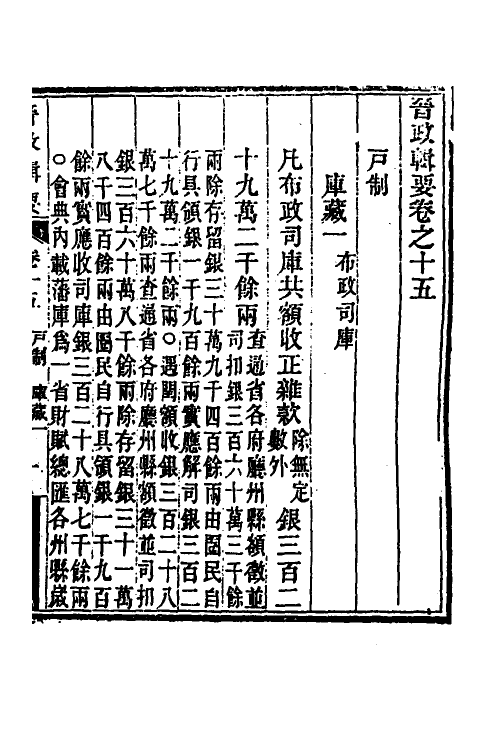 晉政輯要卷之十五
戸制
庫藏一 布政司庫
凡布政司庫共額收正雜款除無定數外銀三百二
十九萬二千餘兩查通省各府廳州縣額徵並
司扣銀三百六十萬三千餘
兩除存留銀三十萬九千四百餘兩由圄民自
行具領銀一千九百餘兩實應解司銀三百二
十九萬二千餘兩○遇閏額收銀三百二十八
萬七千餘兩查通省各府廳州縣額徵並司扣
銀三百六十萬八千餘兩除存留銀三十一萬
八千四百餘兩由圄民自行具領銀一千九百
餘兩實應收司庫銀三百二十八萬七千餘兩
○會典內載藩庫爲一省財賦總匯各州縣歲
晉政輯要 卷十五 戸制 庫藏一 一